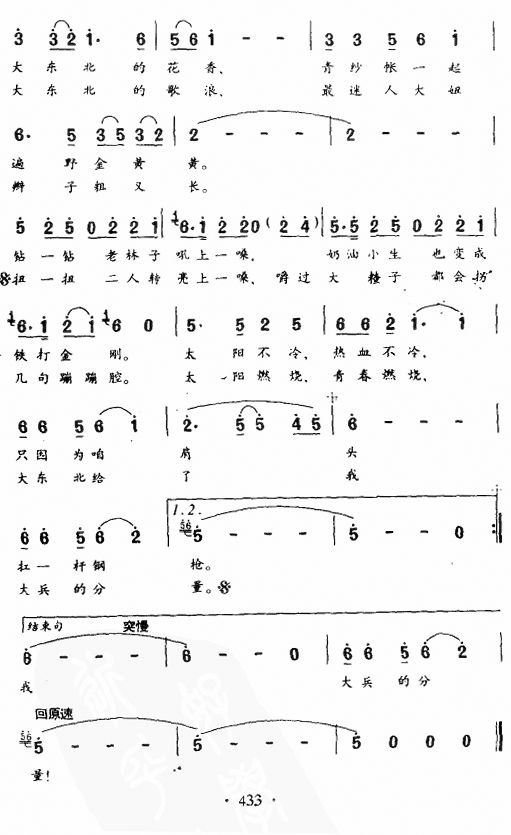 3 3 2 1· 6 | 5 6 1 - - | 3 3 5 6 1
大 东 北 的 花 香、 青 纱 帐 一 起
大 东 北 的 歌 浪、 最 迷 人 大 妞
6· 5 3 5 3 2 | 2 - - - | 2 - - -
遍 野 金 黄 黄。
辫 子 粗 又 长。
5 2 5 0 2 2 1 | 1 6·1 2 2 0 ( 2 4 ) | 5·5 2 5 0 2 2 1
钻 一 钻 老 林 子 吼 上 一 嗓、 奶 油 小 生 也 变 成
扭 一 扭 二 人 转 亮 上 一 嗓、 嚼 过 大 糙 子 都 会 拐
1 6·1 2 1 1 6 0 | 5· 5 2 5 | 6 6 2 1· 1
铁 打 金 刚。 太 阳 不 冷、 热 血 不 冷、
几 句 蹦 蹦 腔。 太 阳 燃 烧、 青 春 燃 烧、
6 6 5 6 1 | 2· 5 5 4 5 | 6 - - -
只 因 为 咱 肩 头
大 东 北 给 了 我
6 6 5 6 2 | 1. 2. 56 5 - - - | 5 - - 0 :‖
扛 一 杆 钢 枪。
大 兵 的 分 量。
结束句 突慢
6 - - - | 6 - - 0 | 6 6 5 6 2
我 大 兵 的 分
回原速
56 5 - - - | 5 - - - | 5 0 0 0 ‖
量！
· 433 ·